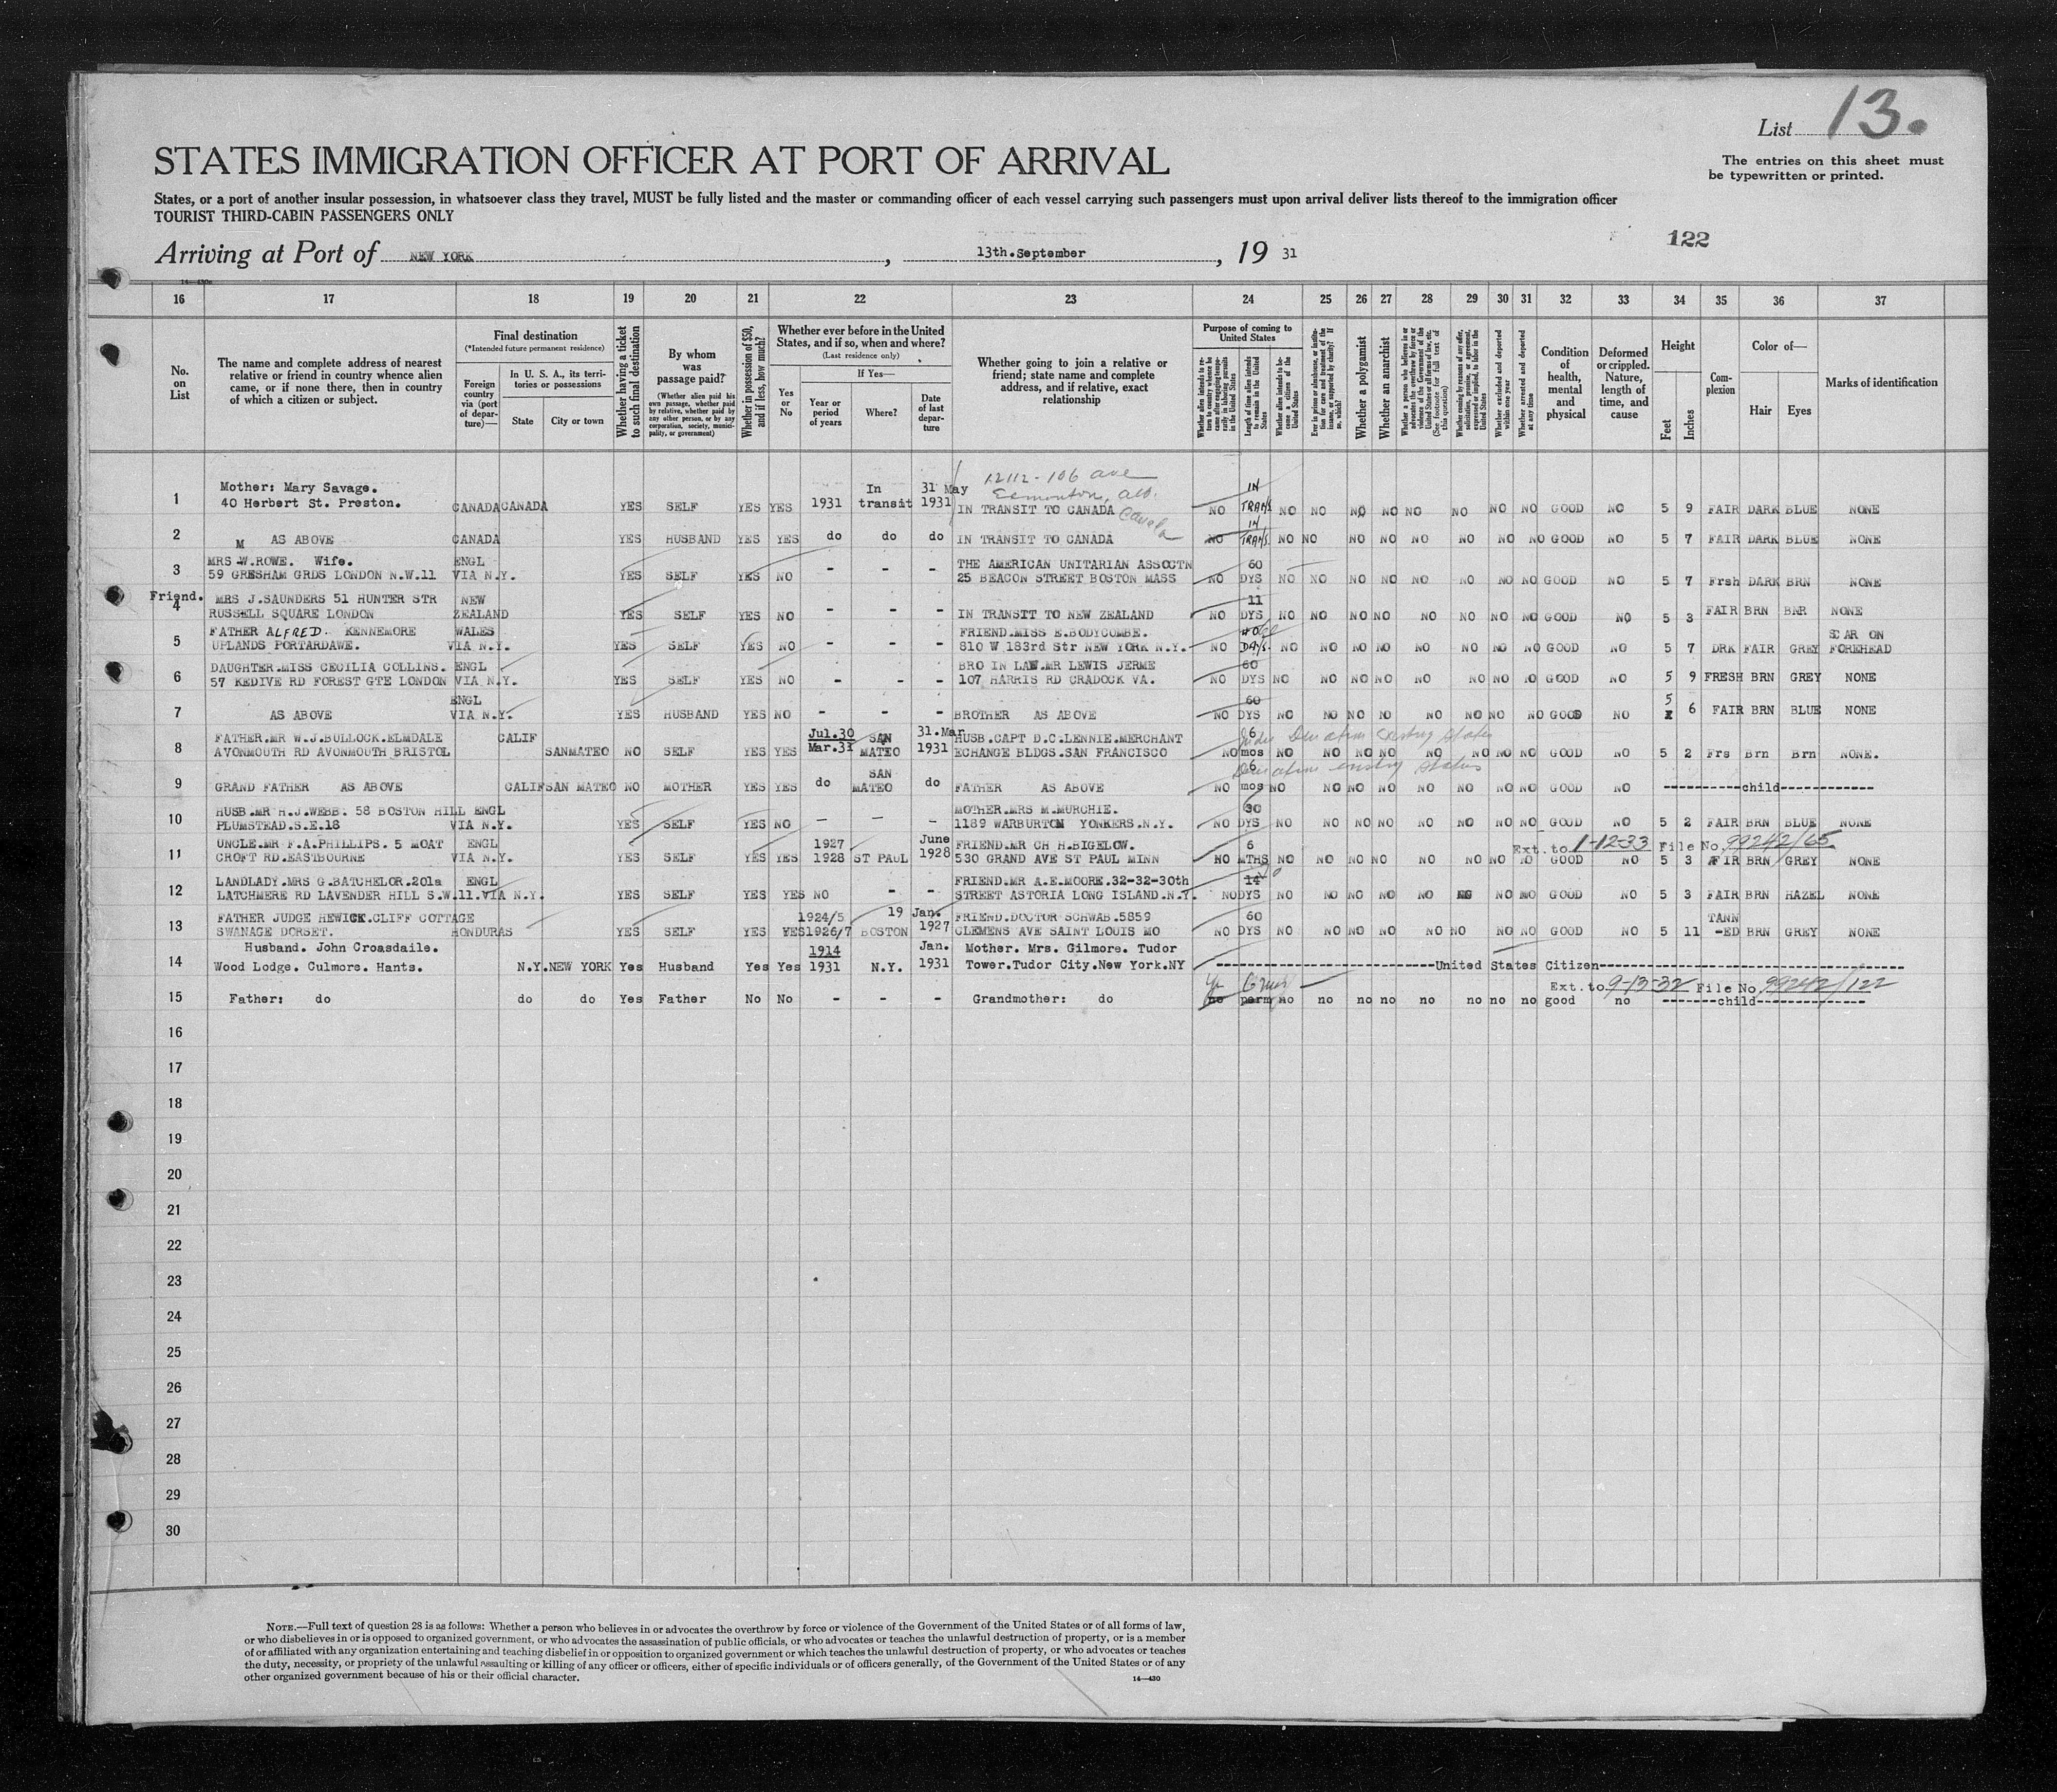 List 13.
STATES IMMIGRATION OFFICER AT PORT OF ARRIVAL
The entries on this sheet must
be typewritten or printed.
States, or a port of another insular possession, in whatsoever class they travel, MUST be fully listed and the master or commanding officer of each vessel carrying such passengers must upon arrival deliver lists thereof to the immigration officer
TOURIST THIRD-CABIN PASSENGERS ONLY
122
Arriving at Port of NEW YORK, 13th.September, 19 31
16 17 18 19 20 21 22 23 24 25 26 27 28 29 30 31 32 33 34 35 36 37
No. on List
The name and complete address of nearest relative or friend in country whence alien came, or if none there, then in country of which a citizen or subject.
Final destination
(*Intended future permanent residence)
Foreign country via (port of departure)—
In U. S. A., its territories or possessions
State
City or town
Whether having a ticket to such final destination
By whom was passage paid?
(Whether alien paid his own passage, whether paid by relative, whether paid by any other person, or by any corporation, society, municipality, or government)
Whether in possession of $50, and if less, how much?
Whether ever before in the United States, and if so, when and where?
(Last residence only)
Yes or No
If Yes—
Year or period of years
Where?
Date of last departure
Whether going to join a relative or friend; state name and complete address, and if relative, exact relationship
Purpose of coming to United States
Whether alien intends to return to country whence he came after engaging temporarily in laboring pursuits in the United States
Length of time alien intends to remain in the United States
Whether alien intends to become a citizen of the United States
Ever in prison or almshouse, or institution for care and treatment of the insane, or supported by charity? If so, which?
Whether a polygamist
Whether an anarchist
Whether a person who believes in or advocates the overthrow by force or violence of the Government of the United States or all forms of law, etc. (See footnote for full text of this question)
Whether coming by reasons of any offer, solicitation, promise, or agreement, expressed or implied, to labor in the United States
Whether excluded and deported within one year
Whether arrested and deported at any time
Condition of health, mental and physical
Deformed or crippled. Nature, length of time, and cause
Height
Feet
Inches
Complexion
Color of—
Hair
Eyes
Marks of identification
12112-106 ave
Edmonton, Alb.
Canada
1 Mother: Mary Savage. In 31 May IN
40 Herbert St. Preston. CANADA CANADA YES SELF YES YES 1931 transit 1931 IN TRANSIT TO CANADA NO TRANS NO NO NO NO NO NO NO NO GOOD NO 5 9 FAIR DARK BLUE NONE
2 M AS ABOVE CANADA YES HUSBAND YES YES do do do IN TRANSIT TO CANADA NO IN TRANS. NO NO NO NO NO NO NO NO GOOD NO 5 7 FAIR DARK BLUE NONE
3 MRS W.ROWE. Wife. ENGL THE AMERICAN UNITARIAN ASSOCTN 60
59 GRESHAM GRDS LONDON N.W.11 VIA N.Y. YES SELF YES NO - - - 25 BEACON STREET BOSTON MASS NO DYS NO NO NO NO NO NO NO NO GOOD NO 5 7 Frsh DARK BRN NONE
Friend.
4 MRS J.SAUNDERS 51 HUNTER STR NEW 11
RUSSELL SQUARE LONDON ZEALAND YES SELF YES NO - - - IN TRANSIT TO NEW ZEALAND NO DYS NO NO NO NO NO NO NO NO GOOD NO 5 3 FAIR BRN BNR NONE
5 FATHER ALFRED. KENNEMORE WALES FRIEND.MISS E.BODYCOMBE. SCAR ON
UPLANDS PORTARDAWE. VIA N.Y. YES SELF YES NO - - - 810 W 183rd Str NEW YORK N.Y. NO DAYS NO NO NO NO NO NO NO NO GOOD NO 5 7 DRK FAIR GREY FOREHEAD
6 DAUGHTER.MISS CECILIA COLLINS. ENGL BRO IN LAW.MR LEWIS JERME 60
57 KEDIVE RD FOREST GTE LONDON VIA N.Y. YES SELF YES NO - - - 107 HARRIS RD CRADOCK VA. NO DYS NO NO NO NO NO NO NO NO GOOD NO 5 9 FRESH BRN GREY NONE
7 ENGL 60 5
AS ABOVE VIA N.Y. YES HUSBAND YES NO - - - BROTHER AS ABOVE NO DYS NO NO NO NO NO NO NO NO GOOD NO 6 FAIR BRN BLUE NONE
8 FATHER.MR W.J.BULLOCK.ELMDALE CALIF Jul.30 SAN 31.Mar HUSB.CAPT D.C.LENNIE.MERCHANT 6
AVONMOUTH RD AVONMOUTH BRISTOL SANMATEO NO SELF YES YES Mar.31 MATEO 1931 ECHANGE BLDGS.SAN FRANCISCO NO mos NO NO NO NO NO NO NO NO GOOD NO 5 2 Frs Brn Brn NONE.
9 SAN 6
GRAND FATHER AS ABOVE CALIF SAN MATEO NO MOTHER YES YES do MATEO do FATHER AS ABOVE NO mos NO NO NO NO NO NO NO NO GOOD NO -----child-----
10 HUSB.MR H.J.WEBB. 58 BOSTON HILL ENGL MOTHER.MRS M.MURCHIE. 30
PLUMSTEAD.S.E.18 VIA N.Y. YES SELF YES NO - - - 1189 WARBURTON YONKERS.N.Y. NO DYS NO NO NO NO NO NO NO NO GOOD NO 5 2 FAIR BRN BLUE NONE
Ext. to 1-12-33 File No. 99242/65
11 UNCLE.MR F.A.PHILLIPS. 5 MOAT ENGL 1927 June FRIEND.MR CH H.BIGELOW. 6
CROFT RD.EASTBOURNE VIA N.Y. YES SELF YES YES 1928 ST PAUL 1928 530 GRAND AVE ST PAUL MINN NO MTHS NO NO NO NO NO NO NO NO GOOD NO 5 3 FAIR BRN GREY NONE
12 LANDLADY.MRS G.BATCHELOR.201a ENGL FRIEND.MR A.E.MOORE.32-32-30th 14
LATCHMERE RD LAVENDER HILL S.W.11.VIA N.Y. YES SELF YES YES NO - - STREET ASTORIA LONG ISLAND.N.Y. NO DYS NO NO NO NO NO NO NO NO GOOD NO 5 3 FAIR BRN HAZEL NONE
13 FATHER JUDGE HEWICK.CLIFF COTTAGE 1924/5 19 Jan. FRIEND.DOCTOR SCHWAB.5859 60 TANN
SWANAGE DORSET. HONDURAS YES SELF YES YES 1926/7 BOSTON 1927 CLEMENS AVE SAINT LOUIS MO NO DYS NO NO NO NO NO NO NO NO GOOD NO 5 11 -ED BRN GREY NONE
14 Husband. John Croasdaile. 1914 Jan. Mother. Mrs. Gilmore. Tudor
Wood Lodge. Culmore. Hants. N.Y. NEW YORK Yes Husband Yes Yes 1931 N.Y. 1931 Tower.Tudor City.New York.NY -----United States Citizen-----
Ext. to 9-13-32 File No. 99242/122
15 Father: do do do Yes Father No No - - - Grandmother: do no perm no no no no no no no no good no -----child-----
16
17
18
19
20
21
22
23
24
25
26
27
28
29
30
NOTE.—Full text of question 28 is as follows: Whether a person who believes in or advocates the overthrow by force or violence of the Government of the United States or of all forms of law,
or who disbelieves in or is opposed to organized government, or who advocates the assassination of public officials, or who advocates or teaches the unlawful destruction of property, or is a member
of or affiliated with any organization entertaining and teaching disbelief in or opposition to organized government or which teaches the unlawful destruction of property, or who advocates or teaches
the duty, necessity, or propriety of the unlawful assaulting or killing of any officer or officers, either of specific individuals or of officers generally, of the Government of the United States or of any
other organized government because of his or their official character.
14—430